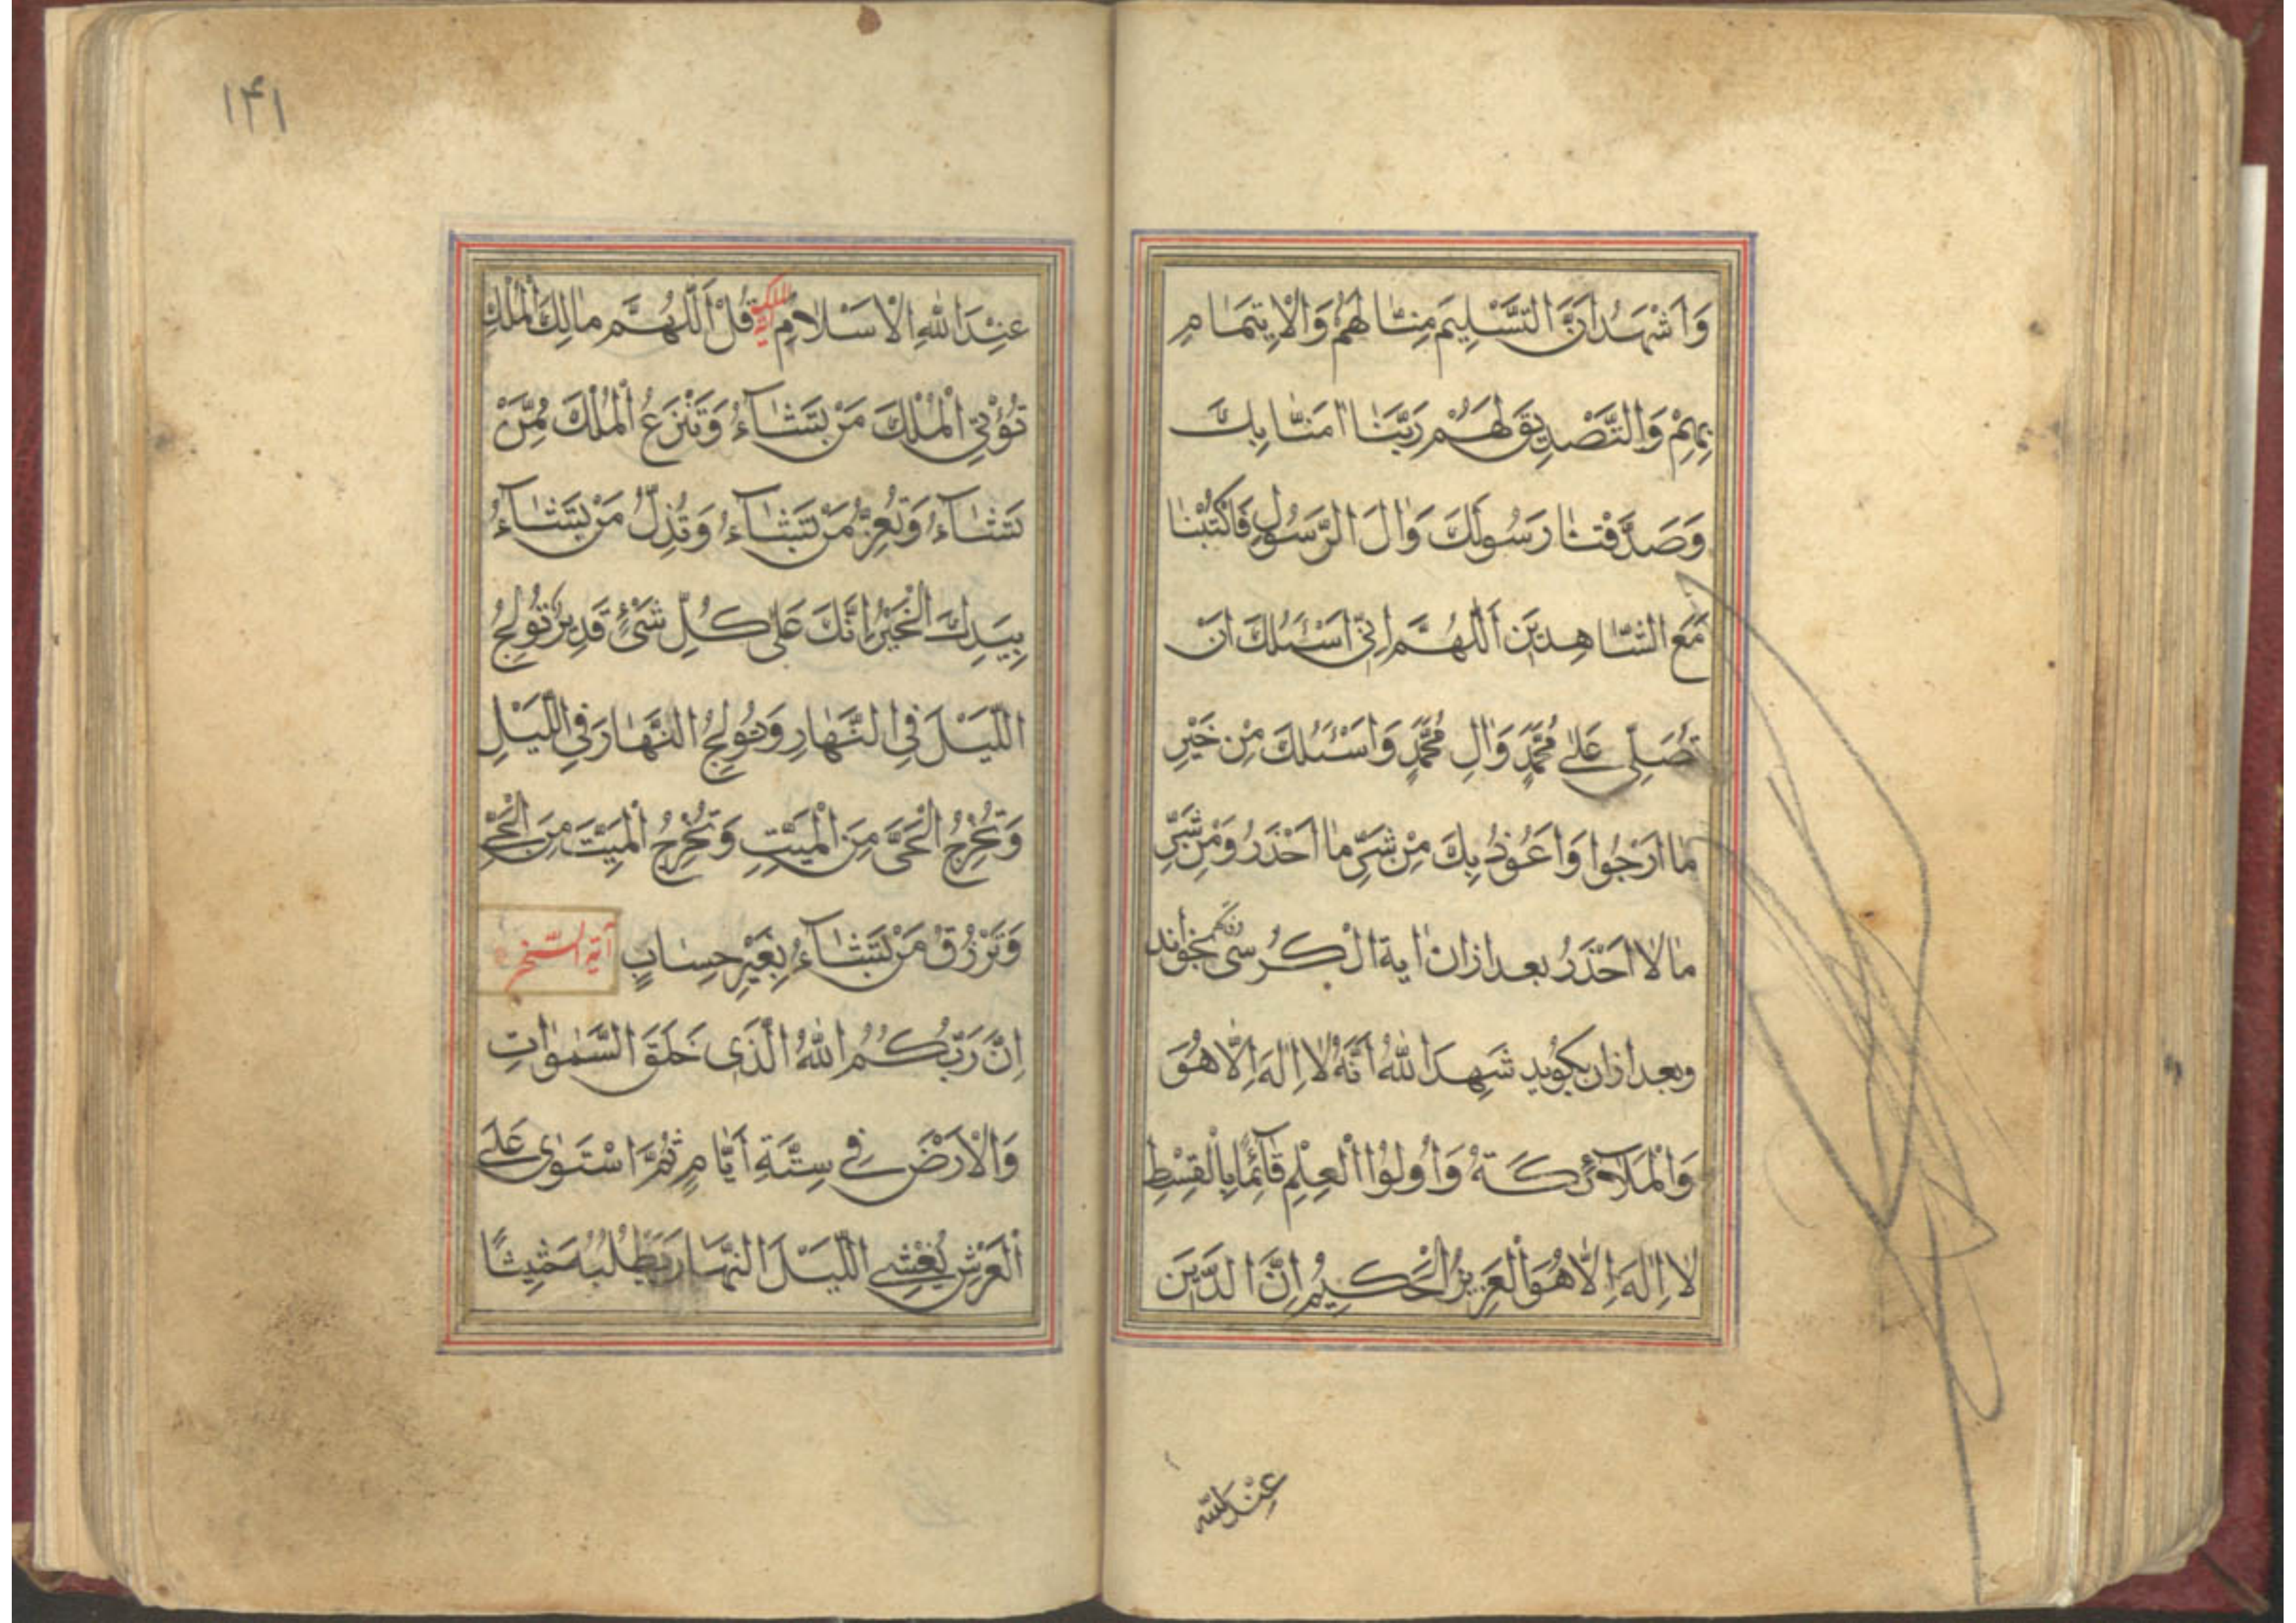 وَاَشْهَدُ اَنَّ التَّسْلِيمَ مِنّٰا لَهُمْ وَالْاِيتِمٰامِ
بِهِمْ وَالتَّصْدِيقَ لَهُمْ رَبَّنٰا اٰمَنّٰا بِكَ
وَصَدَّقْنٰا رَسُولَكَ وَاٰلَ الرَّسُولِ فَاكْتُبْنٰا
مَعَ الشّٰاهِدِينَ اَللّٰهُمَّ اِنّٖى اَسْئَلُكَ اَنْ
تُصَلِّىَ عَلىٰ مُحَمَّدٍ وَاٰلِ مُحَمَّدٍ وَاَسْئَلُكَ مِنْ خَيْرِ
مٰا اَرْجُوا وَاَعُوذُ بِكَ مِنْ شَرِّ مٰا اَحْذَرُ وَمِنْ شَرِّ
مٰا لٰا اَحْذَرُ بعد ازان اية الكرسى بخواند
وبعد ازان بكويد شَهِدَ اللّٰهُ اَنَّهُ لٰا اِلٰهَ اِلّٰا هُوَ
وَالْمَلٰٓائِكَةُ وَاُولُوا الْعِلْمِ قٰٓائِمًا بِالْقِسْطِ
لٰا اِلٰهَ اِلّٰا هُوَ الْعَزِيزُ الْحَكِيمُ اِنَّ الدّٖينَ
عِنْدَ اللّٰه
١۴١
عِنْدَ اللّٰهِ الْاِسْلٰامُ آية الملك قُلْ اَللّٰهُمَّ مٰالِكَ الْمُلْكِ
تُؤْتِى الْمُلْكَ مَنْ تَشٰٓاءُ وَتَنْزِعُ الْمُلْكَ مِمَّنْ
تَشٰٓاءُ وَتُعِزُّ مَنْ تَشٰٓاءُ وَتُذِلُّ مَنْ تَشٰٓاءُ
بِيَدِكَ الْخَيْرُ اِنَّكَ عَلىٰ كُلِّ شَىْءٍ قَدِيرٌ تُولِجُ
اللَّيْلَ فِى النَّهٰارِ وَتُولِجُ النَّهٰارَ فِى اللَّيْلِ
وَتُخْرِجُ الْحَىَّ مِنَ الْمَيِّتِ وَتُخْرِجُ الْمَيِّتَ مِنَ الْحَىِّ
وَتَرْزُقُ مَنْ تَشٰٓاءُ بِغَيْرِ حِسٰابٍ آية السّخره
اِنَّ رَبَّكُمُ اللّٰهُ الَّذٖى خَلَقَ السَّمٰوٰاتِ
وَالْاَرْضَ فِى سِتَّةِ اَيّٰامٍ ثُمَّ اسْتَوٰى عَلَى
الْعَرْشِ يُغْشِى اللَّيْلَ النَّهٰارَ يَطْلُبُهُ حَثِيثًا